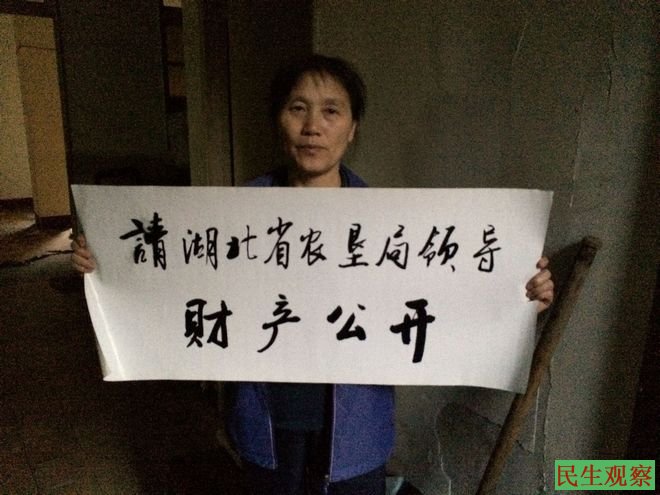 請湖北省农垦局领导
財产公开
民生观察